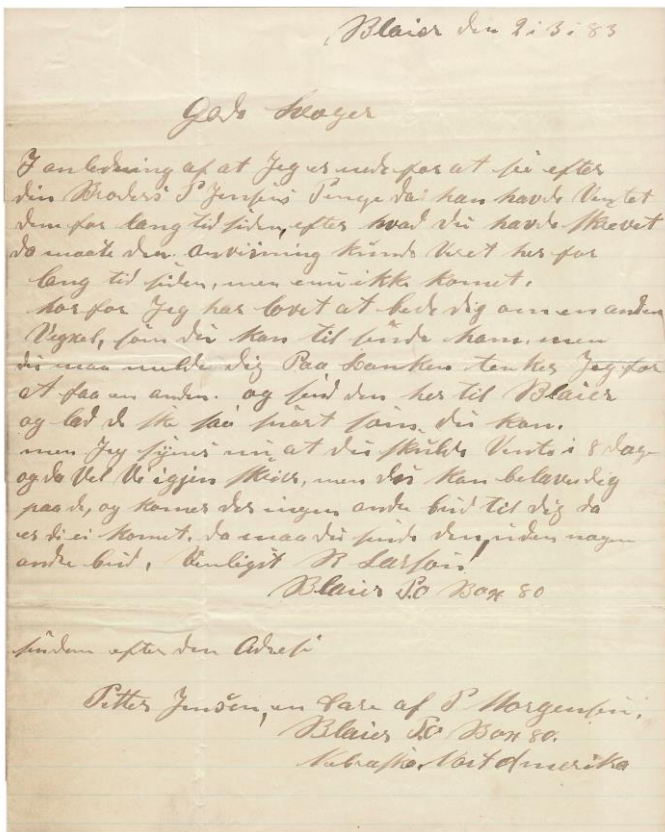 Blaier den 2i3i83
Gode Svoger
I anledning af at Jeg er nede for at sée efter
din Broders P Jensens Penge da han havde Ventet
dem for lang tid siden, efter hvad du havde skrevet
da maate den anvisning kunde Veret her for
lang tid siden, men enu ikke komet.
hor for Jeg har lovet at bede dig om en anden
Vexel, som du kan til sende ham, men
du maa melde dig Paa banken tenker Jeg for
at faa en anden. og send den her til Blaier
og lad de ske saa snart som du kan.
men Jeg synes nu at du skulde Vente i 8 dage
og da Vel Vi igjen skive, men du kan belave dig
paa de, og komer der ingen andre bud til dig da
er di ei komet. da maa du sende den uden nogen
andre bud. Venligst R Larson!
Blaier P.O Box 80
senden efter den Adrese
Petter Jensen, en Care af P Morgensen,
Blaier P.O Box 80.
Nebraska Nort Amerika